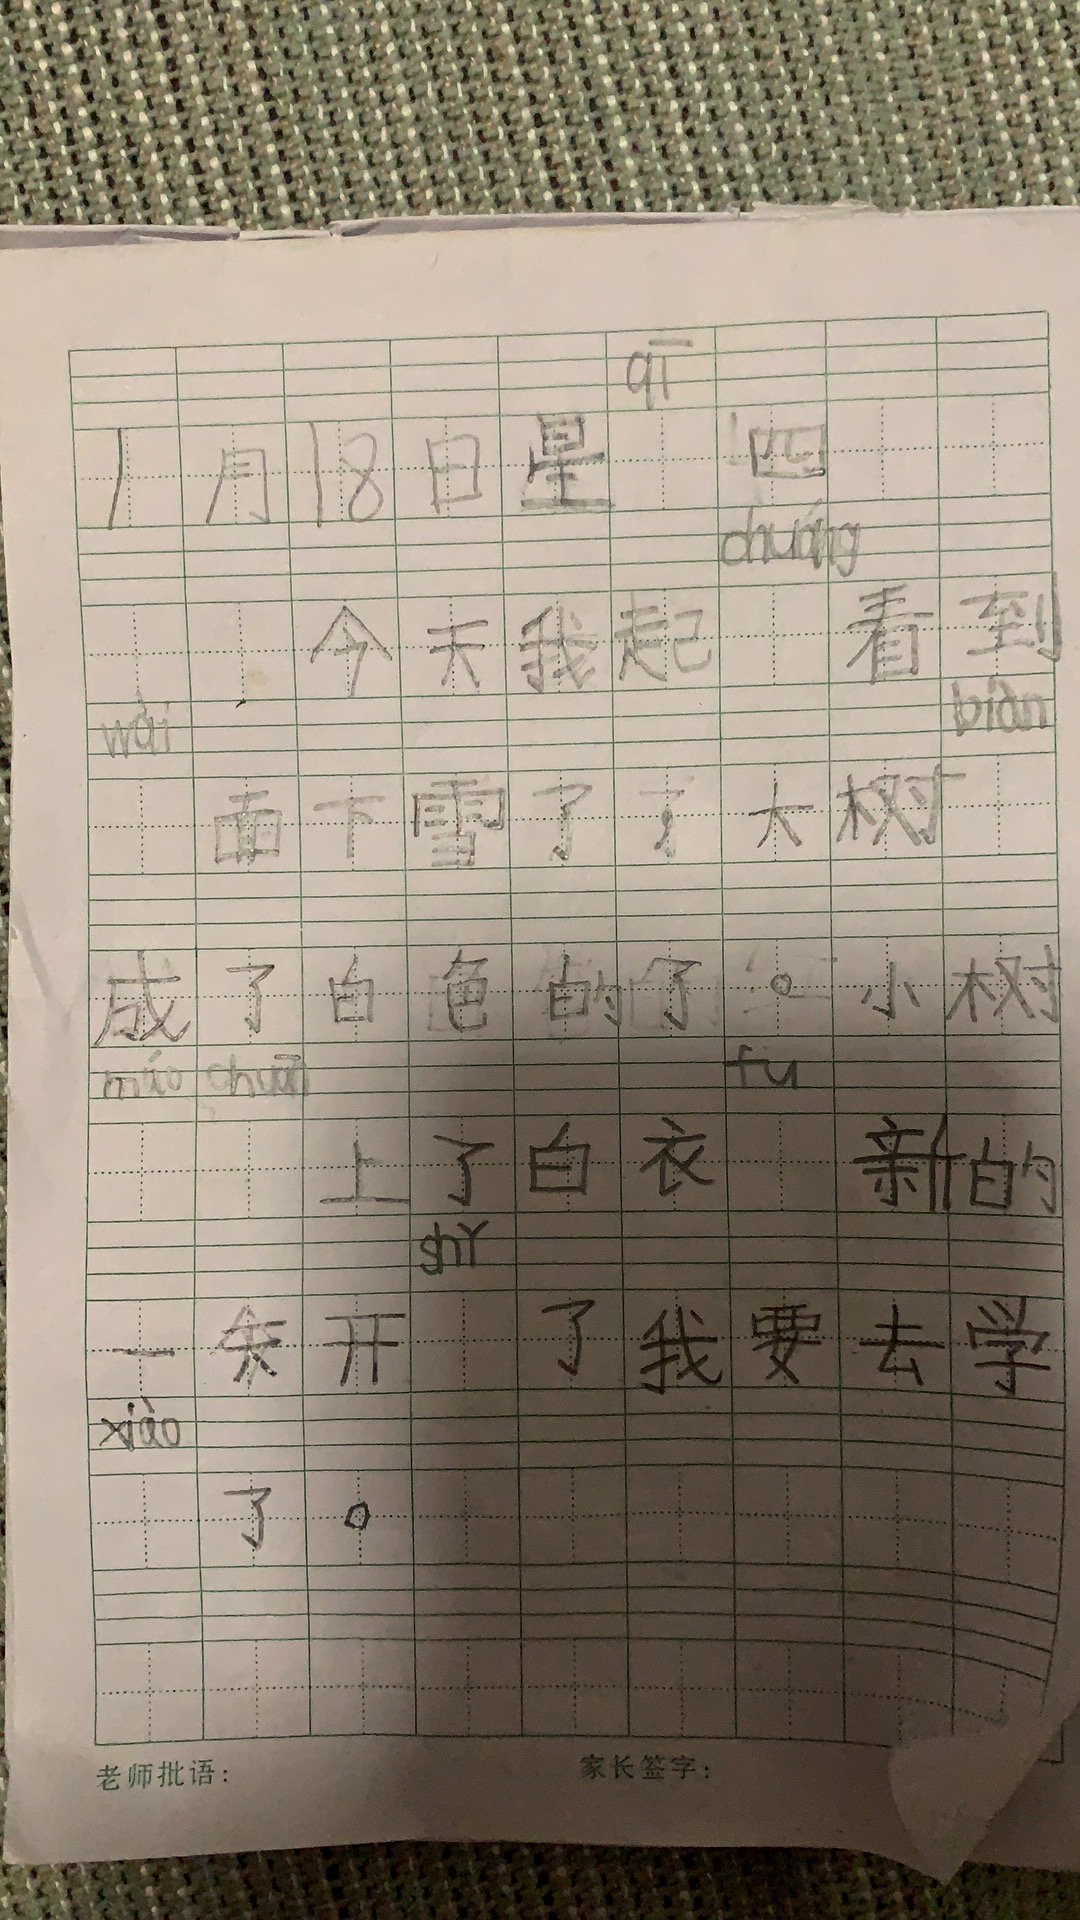 qī
1月18日星 四
chuáng
今天我起 看到
wài biàn
面下雪了了大树
成了白色的了。小树
máo chuān fu
上了白衣 新的
shǐ
一 开 了我要去学
xiào
了。
老师批语： 家长签字：